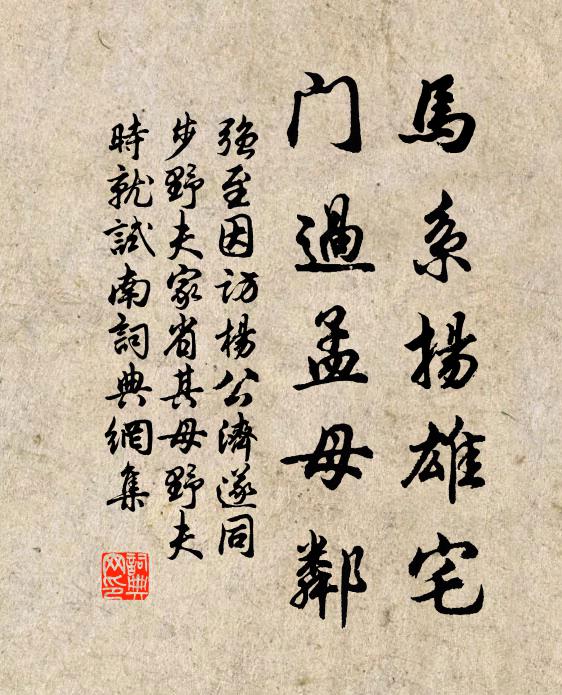 馬系揚雄宅
門過孟母鄰
強至因訪楊公濟遂同
步野夫家省其母野夫
時就試南詞典網集
詞典
网印